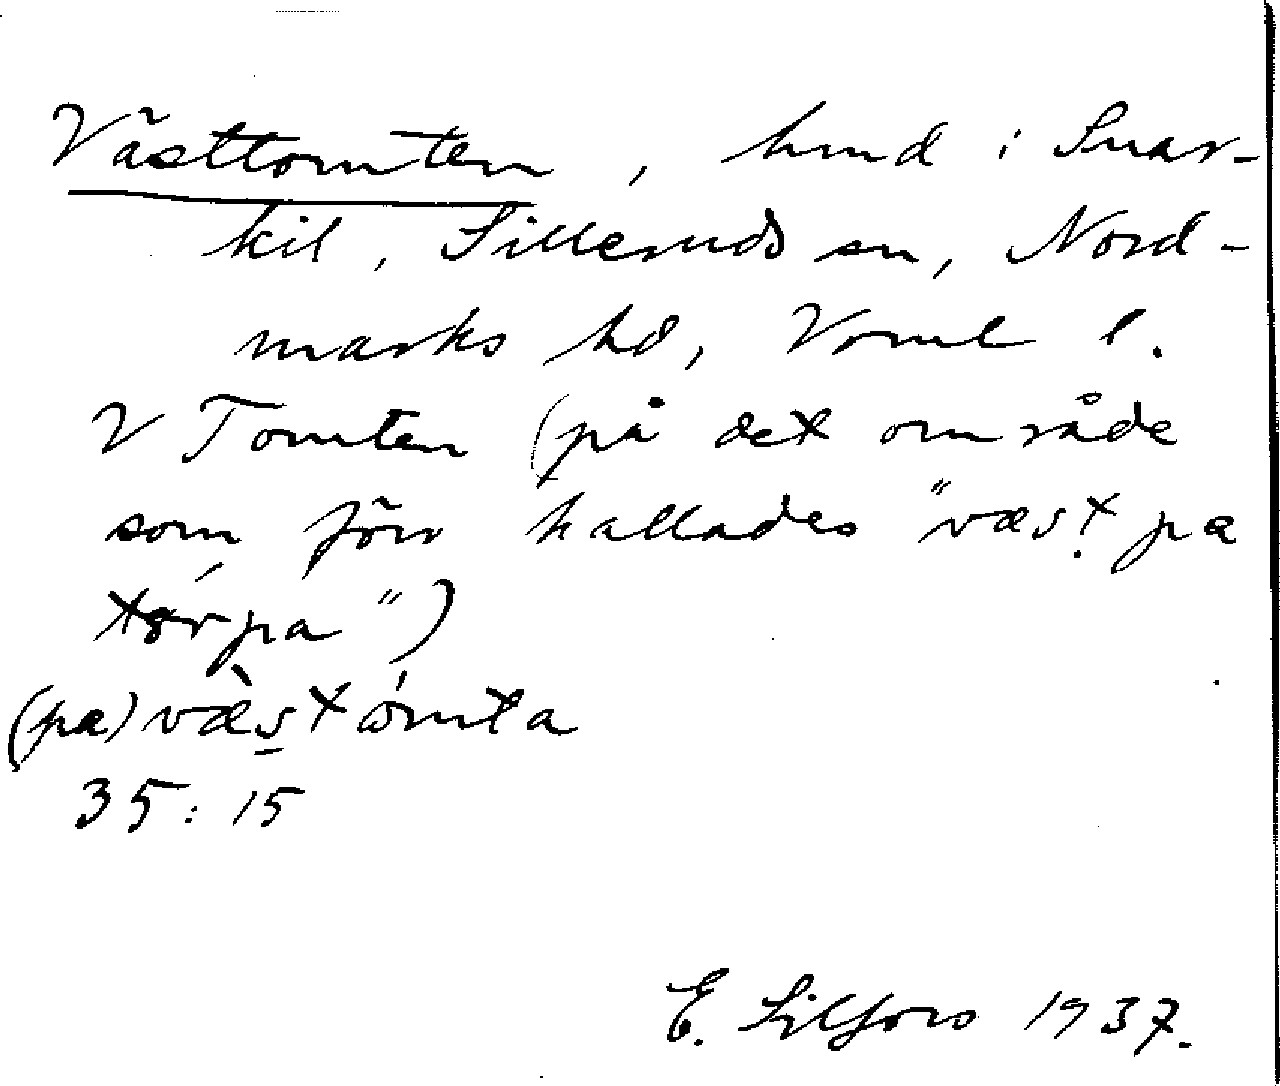 Västtomten, hmd i Snar-
kil, Silleruds sn, Nord-
marks hd, Vrml l.
V Tomten (på det område
som förr kallades "væst pa
torpa")
(pa) væstòmta
35:15
E. Lilfors 1937.